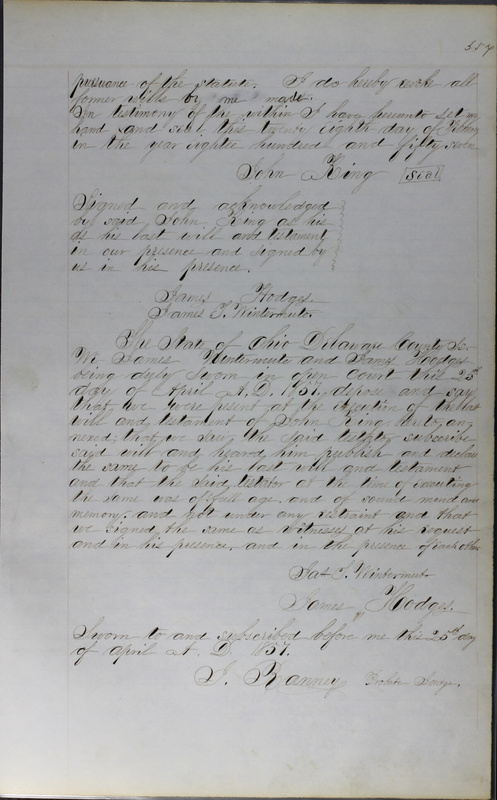 357
pursuance of the statute. I do hereby revoke all
former wills by me made.
In testimony of the within I have hereunto set my
hand and seal this twenty eighth day of
in the year eighteen hundred and fifty seven
John King Seal
Signed and acknowledged
by said John King as his
as his last will and testament
in our presence and signed by
us in his presence.
James Hodges.
James T. Wintermute.
The State of Ohio Delaware County Sc.
We James Wintermute and James Hodges
being duly sworn in open Court this 25th
day of April A.D. 1857. depose and say
that, we were present at the execution of the last
will and testament of John King
that we saw the said testator subscribe
said will and heard him publish and declare
the same to be his last will and testament
and that the said testator at the time of executing
the same was of full age, and of sound mind and
memory. and not under any restraint and that
we signed the same as witnesses at his request
and in his presence. and in the presence of each other
Jas T. Wintermute
James Hodges.
Sworn to and subscribed before me this 25th day
of april A. D. 1857.
Ranney Probate Judge.